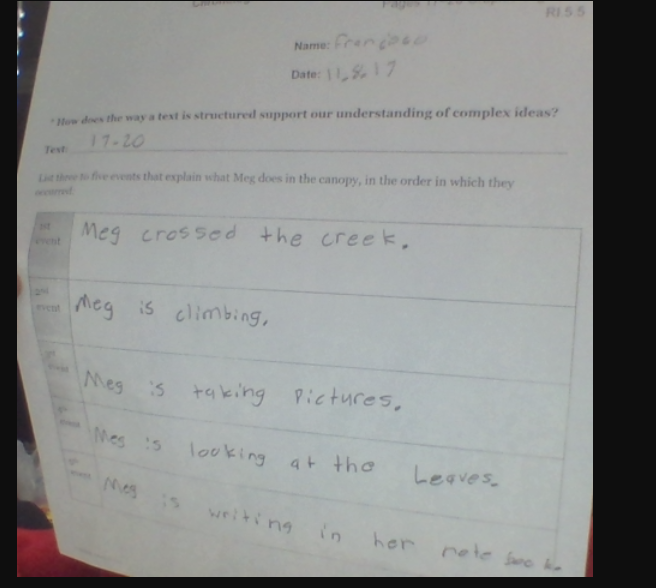 RI.5.5
Name: Francisco
Date: 11.8.17
* How does the way a text is structured support our understanding of complex ideas?
Text: 17-20
List three to five events that explain what Meg does in the canopy, in the order in which they
occurred
1st event Meg crossed the creek.
2nd event Meg is climbing.
event Meg is taking Pictures.
event Meg is looking at the Leaves.
event Meg is writing in her note book.